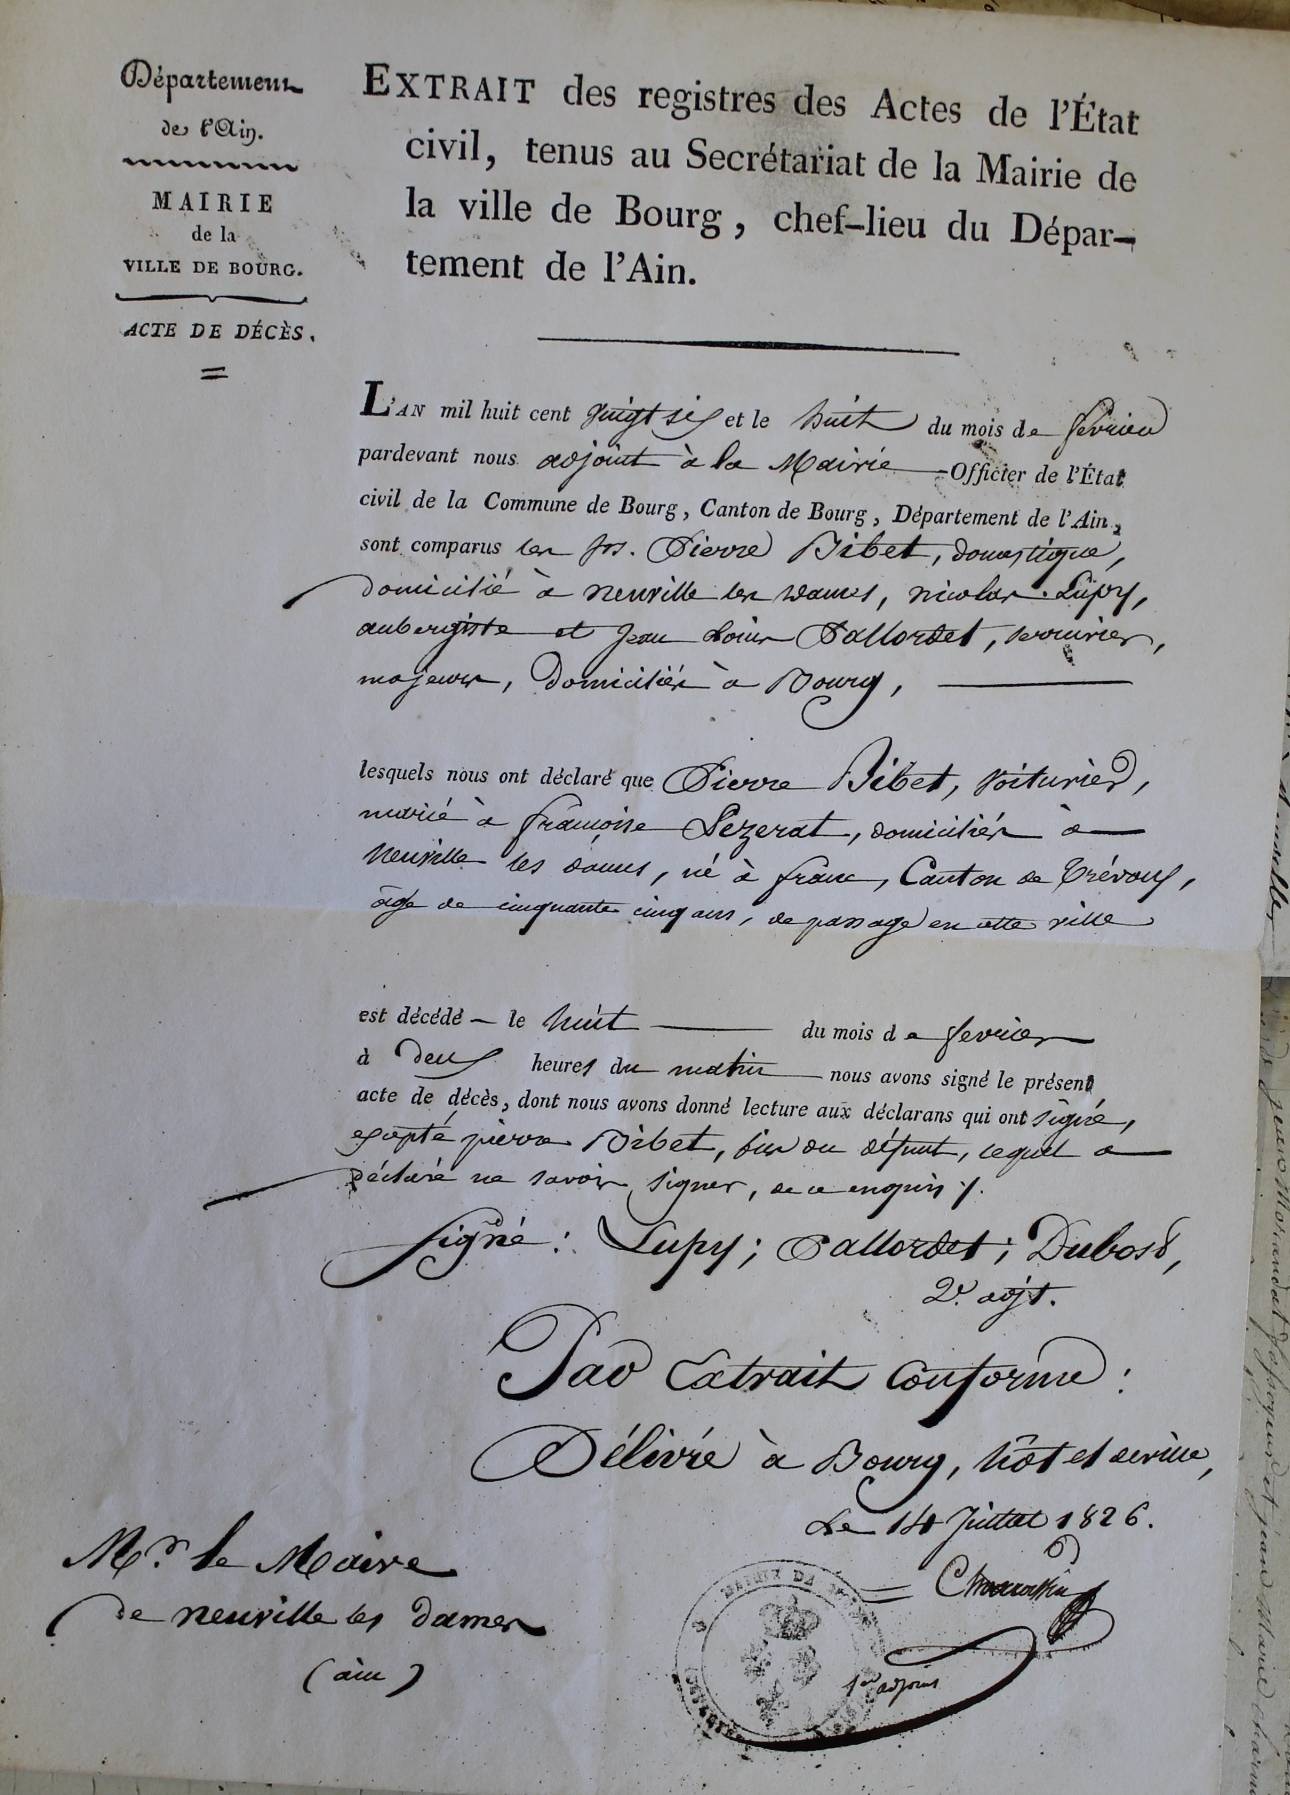 Département
de l'Ain.
MAIRIE
de la
VILLE DE BOURG.
ACTE DE DÉCÈS.
EXTRAIT des registres des Actes de l'État
civil, tenus au Secrétariat de la Mairie de
la ville de Bourg, chef-lieu du Dépar-
tement de l'Ain.
L'AN mil huit cent vingt six et le huit du mois de fevrier
pardevant nous adjoint à la Mairie Officier de l'État
civil de la Commune de Bourg, Canton de Bourg, Département de l'Ain,
sont comparus les srs. Pierre Bibet, domestique,
domicilié à neuville les dames, nicolas Lupy,
aubergiste et Jean Louis Pallordet, serrurier,
majeurs, domiciliés à Bourg,
lesquels nous ont déclaré que Pierre Bibet, voiturier,
marié à françoise Lezerat, domiciliés à
neuville les dames, né à franc, Canton de Trévoux,
âgé de cinquante cinq ans, de passage en cette ville
est décédé le huit du mois de fevrier
à deux heures du matin nous avons signé le présent
acte de décès, dont nous avons donné lecture aux déclarans qui ont signé,
excepté pierre Bibet, fils du défunt, lequel a
déclaré ne savoir signer, de ce enquis
signé: Lupy; Pallordet; Dubost,
2e. adjt.
Par Extrait Conforme:
Délivré à Bourg, hôtel de ville,
Le 14 Juillet 1826.
1er adjoint
Mr. le Maire
de neuville les dames
(ain)
MAIRIE DE